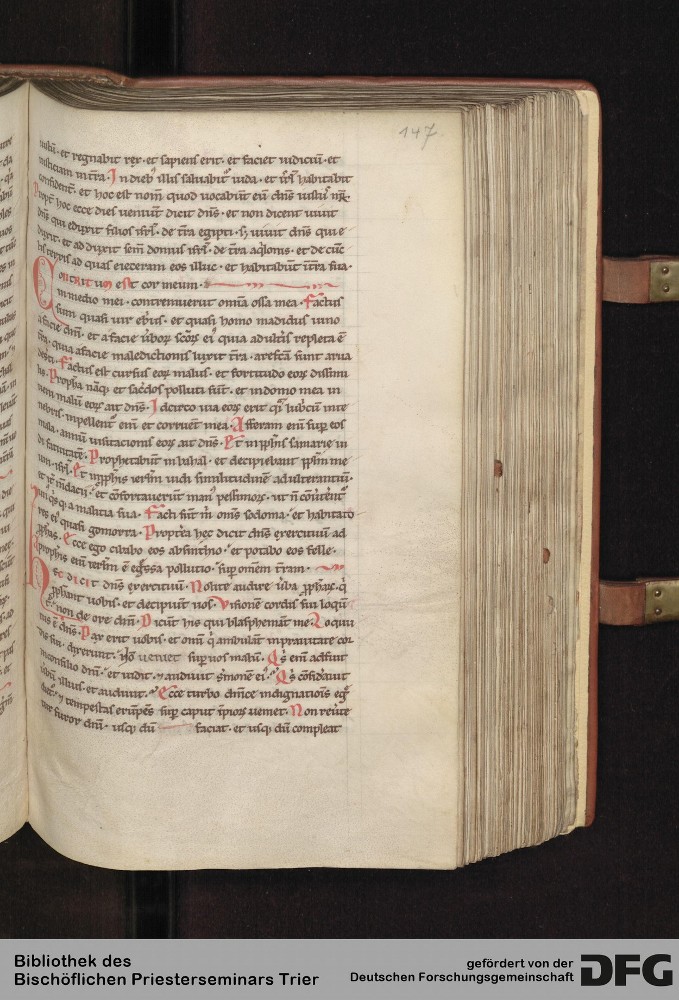 147
iustū · et regnabit rex · et sapiens erit · et faciet iudiciū · et
iusticiam in tr̄a · In dieb; illis saluabit̉ iuda · et isrl̄ habitabit
confident̉ · et hoc est nom̄ quod uocabunt eū dn̄s iustꝰ nr̄ ·
Propt̉ hoc ecce dies ueniunt dicit dn̄s · et non dicent uiuit
dn̄s qui eduxit filios isrl̄ · de tr̄a egipti · s; uiuit dn̄s qui e
duxit · et adduxit sem̄ domus isrl̄ · de tr̄a aq̇lonis · et de cūc
tis terris ad quas eieceram eos illuc · et habitabūt ī tr̄a sua ·
Contritum est cor meum ·
in medio mei · contremuerunt omnia ossa mea · Factus
sum quasi uir ebrius · et quasi homo madidus uino
a facie dn̄i · et a facie ūborꝝ scōrꝝ eiꝰ quia adult̉is repleta ē
tr̄a · quia a facie maledictionis luxit tr̄a · arefcā sunt arua
des̉ti · Factus est cursus eorꝝ malus · et fortitudo eorꝝ dissimi
lis · Propha nāq; et sac̉dos polluti sūt · et in domo mea in
ueni malum eorꝝ ait dn̄s · Idcirco uia eorꝝ erit q̄i lubricū in te
nebris · inpellent̉ eni͂ et corruent in ea · Afferam eni͂ sup̉ eos
mala · annū uisitacionis eorꝝ ait dn̄s · Et in pph̄is samarie ui
di fatuitatē · Prophetabant in bahal · et decipiebant ppl̄m me
um · isrl̄ · Et in pph̄is ierl̄m uidi similitudinē adulterantiū ·
et it̉ mdacii · et cōfortauerunt manꝰ pessimorꝝ · ut n̄ cōuertēt̉
unꝰq̇sq; a malicia sua · Facti sunt m̄ om̄s sodoma · et habitato
res eiꝰ quasi gomorra · Propt̉ea hec dicit dn̄s exercituū ad
pph̄as · Ecce ego cibabo eos absinthio · et potabo eos felle ·
a prophis eni͂ ierl̄m ē egr̄ssa pollutio · sup̉ om̄em tr̄am ·
Hec dicit dn̄s exercituū · Nolite audire ūba pph̄arꝝ · q̇
pph̄ant uobis · et decipiūt uos · Visionē cordis sui loqūt
ur · non de ore dn̄i · Dicūt his qui blasphemāt me · Locutu
us ē dn̄s · Pax erit uobis · et om̄i q̇ ambulāt in prauitate cor
dis sui · dixerunt · n̄o ueniet sup̉ uos malū · Q̇s eni͂ adfuit
in consilio dn̄i · et uidit · et audiuit s̉monē eiꝰ · Q̇s cōsid̉auit
ūbū illius · et audiuit · Ecce turbo dn̄ice indignationis egr̄
diet̉ · et tempestas erūpēs sup̉ caput īpiorꝝ ueniet · Non reu̓te
tur furor dn̄i · usq; dū faciat · et usq; dū compleat
Bibliothek des
Bischöflichen Priesterseminars Trier
gefördert von der
Deutschen Forschungsgemeinschaft
DFG